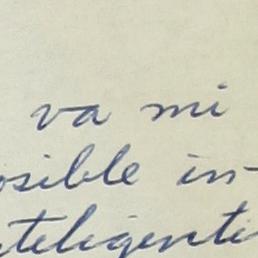 va mi
osible in-
teligenti